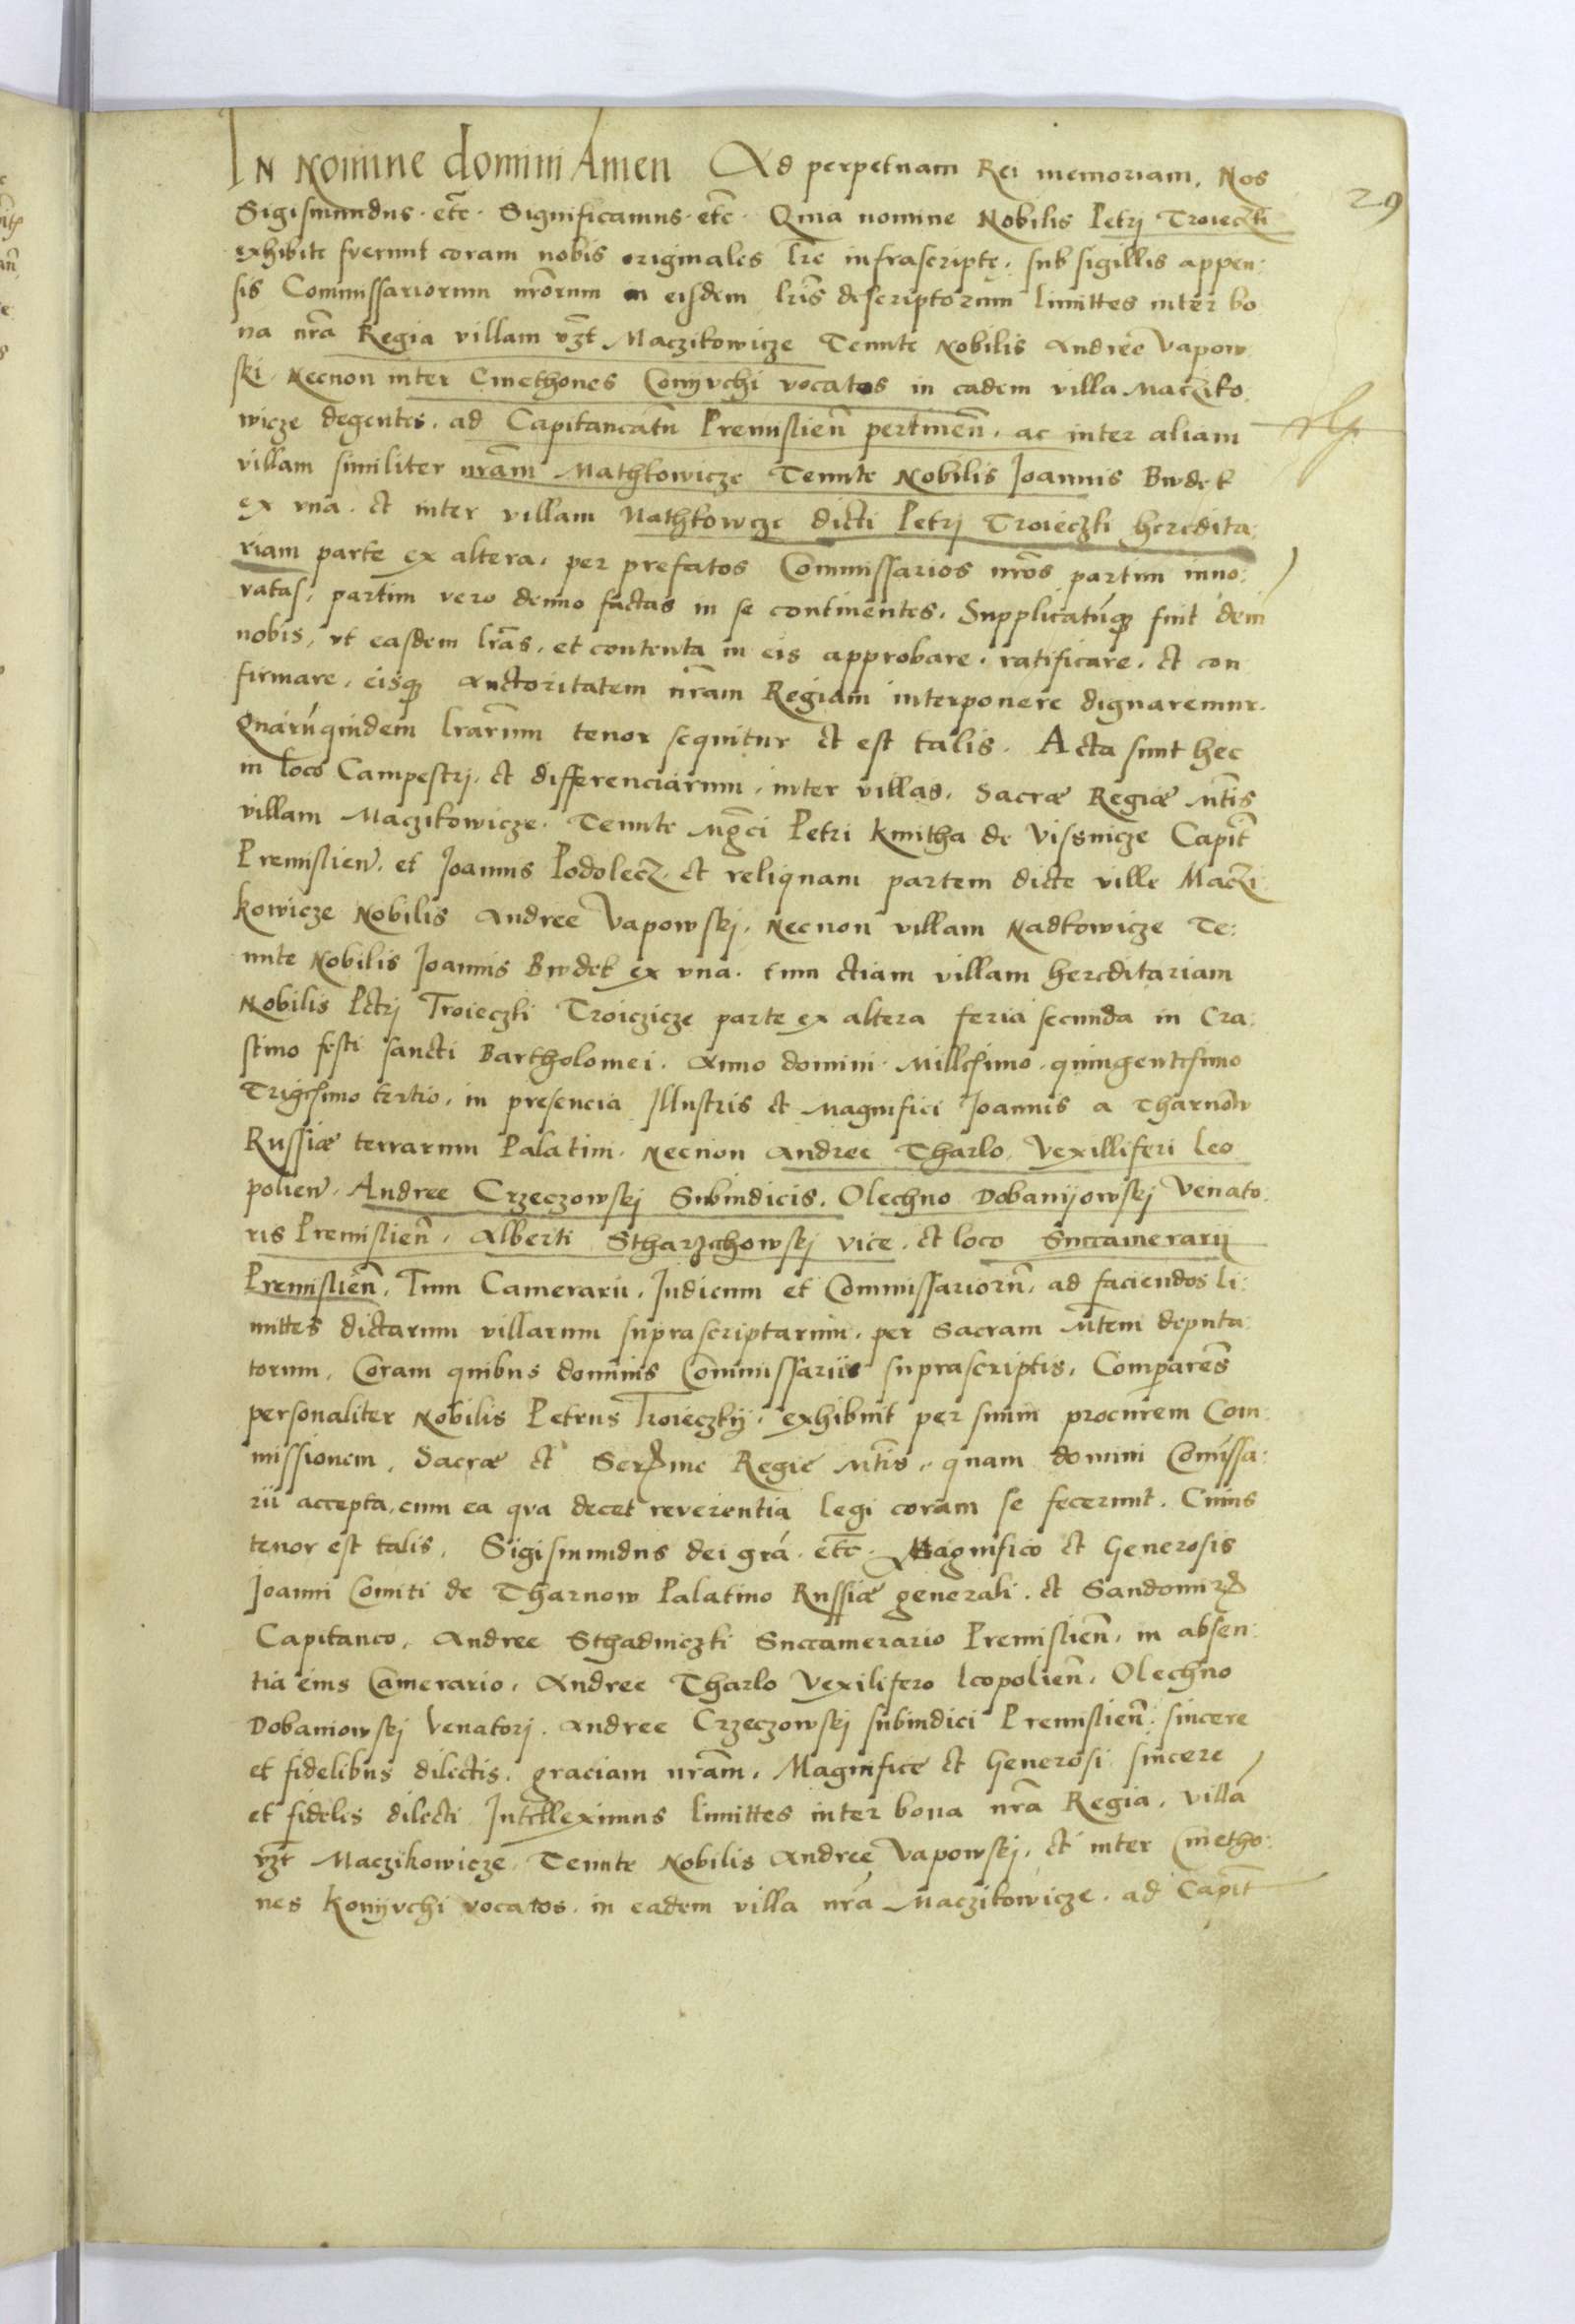 In Nomine domini Amen Ad perpetuam Rei memoriam. Nos
29
Sigismundus. etc̃. Significamus. etc̃. Quia nomine Nobilis Petrj Troieczki
exhibite fuerunt coram nobis originales lr̃e infrascripte, sub sigillis appen:
sis Commissariorum nr̃orum in eisdem lr̃is descriptorum limittes inter bo
na nr̃a Regia villam vz̃t Maczikowicze Tenute Nobilis Andree Vapow
ski. Necnon inter Cmethones Conyvchi vocatos in eadem villa Macziko
wicze degentes. ad Capitaneatũ Premislieñ pertineñ. ac inter aliam
villam similiter nr̃am Mathkowicze Tenute Nobilis Joannis Bwdek
ex vna. et inter villam Nathkowcze dicti Petrj Troieczki heredita:
riam parte ex altera, per prefatos Commissarios nr̃os partim inno:
vatas, partim vero denuo factas in se continentes. Supplicatũq; fuit dein
nobis, vt easdem lr̃as, et contenta in eis approbare. ratificare. et con
firmare, eisq; Auctoritatem nr̃am Regiam interponere dignaremur.
Quarũquidem lr̃arum tenor sequitur et est talis. Acta sunt hec
in loco Campestrj. et differenciarum. inter villas. Sacræ Regiæ Mt̃is
villam Maczikowicze. Tenute Mg̃ci Petri Kmitha de Vissnicze Capit̃
Premislieñ. et Joannis Podolecz. et reliquam partem dicte ville Maczi
kowicze Nobilis Andree Vapowskj. Necnon villam Nadkowicze Te:
nute Nobilis Joannis Bwdek ex vna. tum etiam villam hereditariam
Nobilis Petrj Troieczki Troiczicze parte ex altera feria secunda in Cra:
stino festi sancti Bartholomei. Anno domini Millesimo quingentesimo
Trigesimo tertio, in presencia Illustris et Magnifici Joannis a Tharnow
Russiæ terrarum Palatini. Necnon Andree Tharlo Vexilliferi Leo
polieñ. Andree Crzeczowskj Subiudicis. Olechno Dobanyowskj Venato:
ris Premislieñ, Alberti Stharzchowskj vice. et loco Succamerarij
Premislieñ, Tum Camerarii. Judicum et Commissariorũ, ad faciendos li:
mittes dictarum villarum suprascriptarum. per Sacram Mt̃em deputa:
torum. Coram quibus dominis Commissariis suprascriptis. Comparẽs
personaliter Nobilis Petrus Troieczkij. exhibuit per suum procurem Com:
missionem. Sacræ et Serme Regie Mt̃is. quam domini Com̃issa:
rii accepta. cum ea qva decet reverentia legi coram se fecerunt. Cuius
tenor est talis. Sigismundus dei gr̃a. etc̃. Magnifico et Generosis
Joanni Comiti de Tharnow Palatino Russiæ generali. et Sandomirꝫ
Capitaneo, Andree Sthadniczki Succamerario Premislieñ, in absen:
tia eius Camerario, Andree Tharlo Vexilifero Leopolieñ, Olechno
Dobaniowskj Venatorj. Andree Crzeczowskj subiudici Premislieñ. sincere
et fidelibus dilectis. graciam nr̃am. Magnifice et Generosi sincere
et fideles dilecti Intelleximus limittes inter bona nr̃a Regia, villã
vz̃t Maczikowicze Tenute Nobilis Andree Vapowskj, et inter Cmetho:
nes Konyvchi vocatos. in eadem villa nr̃a Maczikowicze. ad Capit̃